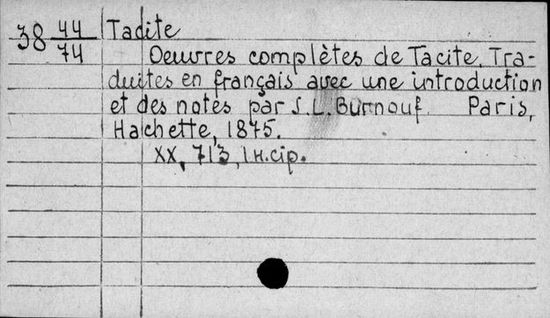 38 44/74 Tacite
Oeuvres complètes de Tacite. Tra-
duites en français avec une introduction
et des notes par J.L. Burnouf Paris,
Hachette, 1875.
XX, 713, 1 н.cip.